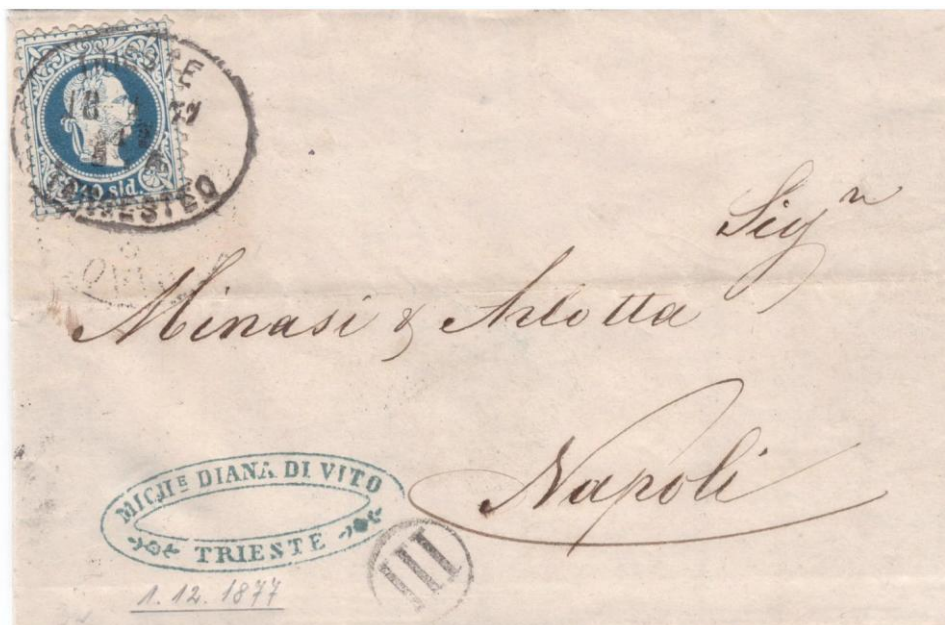 TRIESTE
18
77
TERGESTEO
10 sld.
Sign
Minasi & Arlotta
Napoli
MICHE DIANA DI VITO
TRIESTE
III
1.12.1877